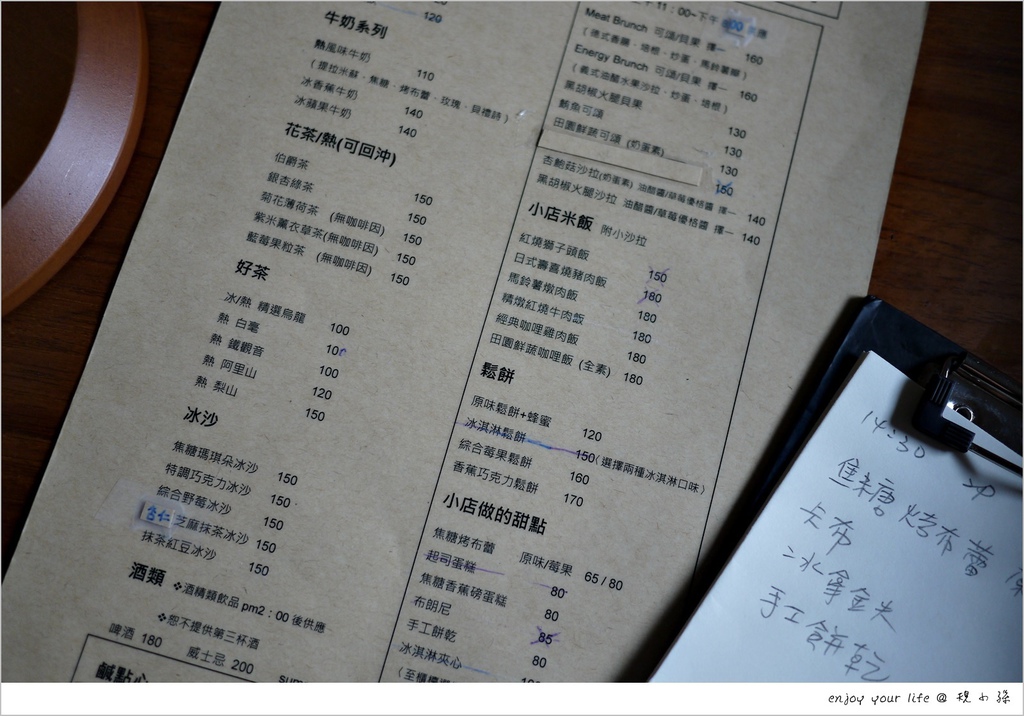 120
牛奶系列
熱風味牛奶 110
(提拉米蘇、焦糖、烤布蕾、玫瑰、貝禮詩)
冰香蕉牛奶 140
冰蘋果牛奶 140
花茶/熱(可回沖)
伯爵茶 150
銀杏綠茶 150
菊花薄荷茶 (無咖啡因) 150
紫米薰衣草茶(無咖啡因) 150
藍莓果粒茶 (無咖啡因) 150
好茶
冰/熱 精選烏龍 100
熱 白毫 100
熱 鐵觀音 100
熱 阿里山 120
熱 梨山 150
冰沙
焦糖瑪琪朵冰沙 150
特調巧克力冰沙 150
綜合野莓冰沙 150
杏仁芝麻抹茶冰沙 150
抹茶紅豆冰沙 150
酒類 ❖酒精類飲品 pm2:00 後供應
❖恕不提供第三杯酒
啤酒 180 威士忌 200
鹹點心
11:00~下午
Meat Brunch 可頌/貝果 擇一 160
(德式香腸、培根、炒蛋、馬鈴薯餅)
Energy Brunch 可頌/貝果 擇一 160
(義式油醋水果沙拉、炒蛋、培根)
黑胡椒火腿貝果 130
鮪魚可頌 130
田園鮮蔬可頌 (奶蛋素) 130
150
杏鮑菇沙拉(奶蛋素) 油醋醬/草莓優格醬 擇一 140
黑胡椒火腿沙拉 油醋醬/草莓優格醬 擇一 140
小店米飯 附小沙拉
紅燒獅子頭飯 150
日式壽喜燒豬肉飯 180
馬鈴薯燉肉飯 180
精燉紅燒牛肉飯 180
經典咖哩雞肉飯 180
田園鮮蔬咖哩飯 (全素) 180
鬆餅
原味鬆餅+蜂蜜 120
冰淇淋鬆餅 150(選擇兩種冰淇淋口味)
綜合莓果鬆餅 160
香蕉巧克力鬆餅 170
小店做的甜點
焦糖烤布蕾 原味/莓果 65 / 80
起司蛋糕 80
焦糖香蕉磅蛋糕 80
布朗尼 85
手工餅乾 80
冰淇淋夾心
14:30
焦糖烤布蕾
卡布
冰拿金尖
手工餅乾
enjoy your life @